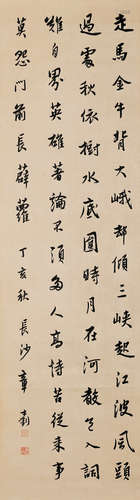 走馬金牛背大峨却傾三峽起江波風頭
過處秋依樹水底圓時月在河教又入詞
難自界英雄著論不須多人高詩苦從來事
莫怨門前長薜蘿
丁亥秋長沙章